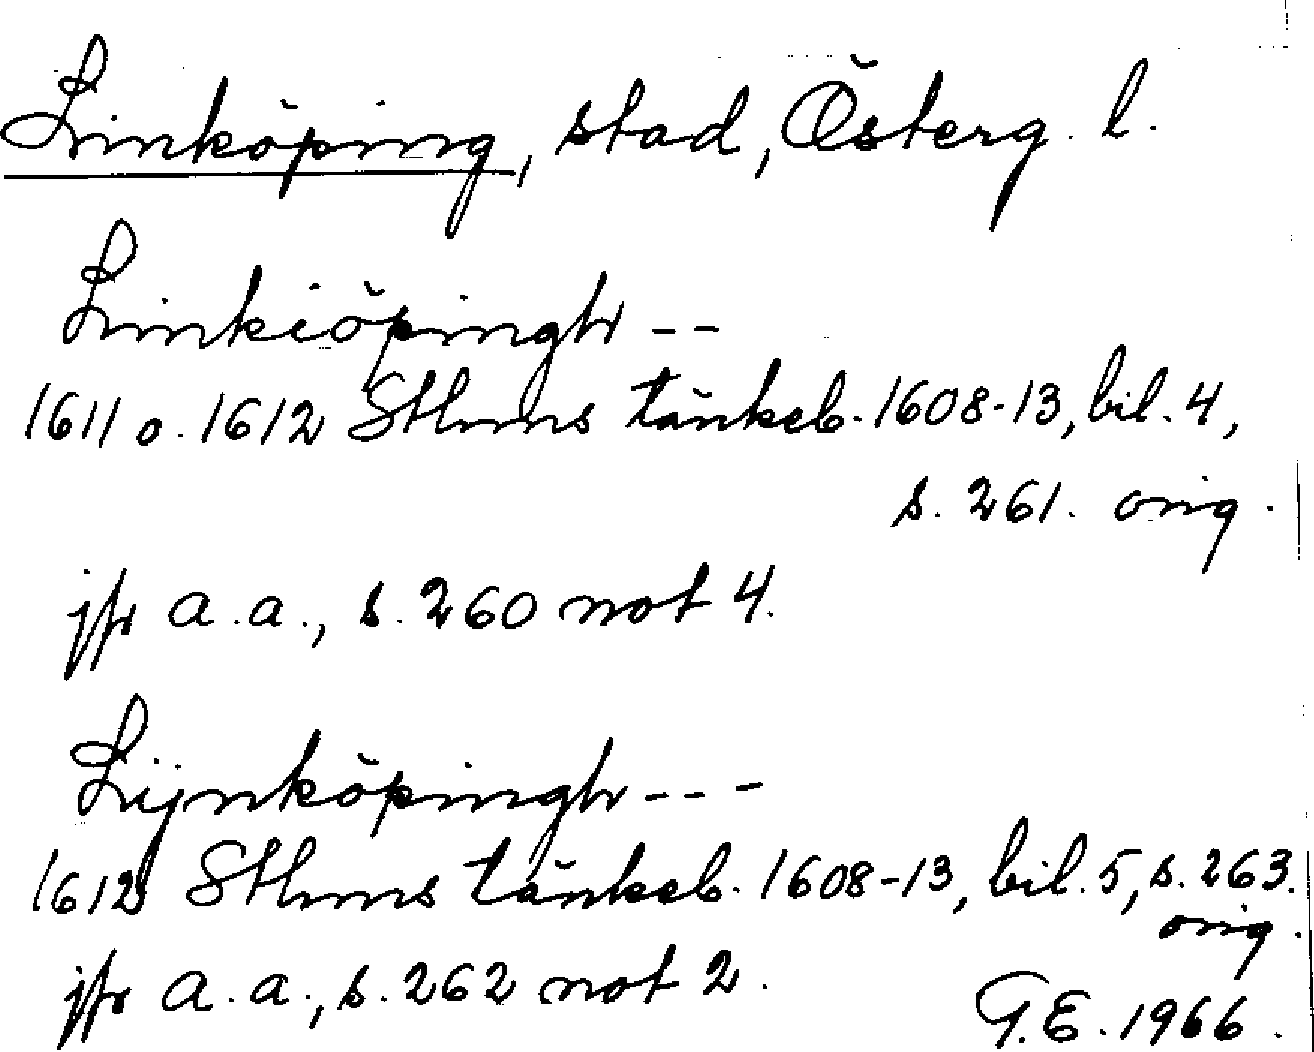 Linköping, stad, Österg. l.
Linkiöpingh --
1611 o. 1612 Sthms tänkeb. 1608-13, bil. 4,
s. 261. orig.
jfr a.a., s. 260 not 4.
Lijnköpingh ---
1612 Sthms tänkeb. 1608-13, bil. 5, s. 263.
orig.
jfr a.a., s. 262 not 2.
G.E. 1966.